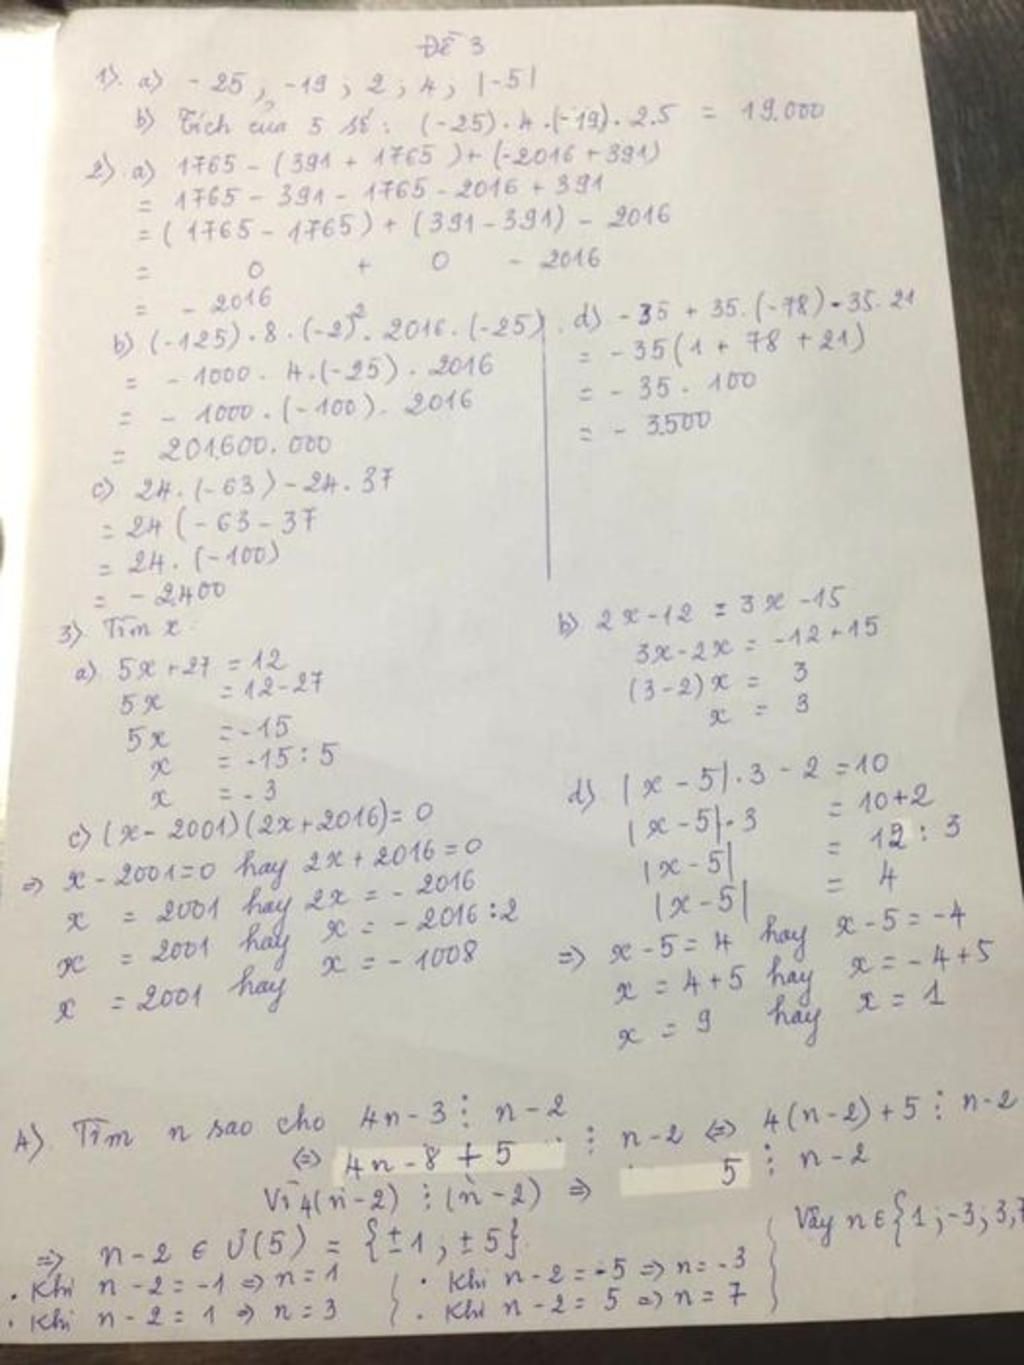 Đề 3
1). a) -25, -19; 2; 4; |-5|
b) Tích của 5 số: (-25).4.(-19).2.5 = 19.000
2). a) 1765 - (391 + 1765) + (-2016 + 391)
= 1765 - 391 - 1765 - 2016 + 391
= (1765 - 1765) + (391 - 391) - 2016
= 0 + 0 - 2016
= - 2016
b) (-125).8.(-2)².2016.(-25)
= - 1000.4.(-25).2016
= - 1000.(-100).2016
= 201.600.000
c) 24.(-63) - 24.37
= 24 (-63 - 37
= 24.(-100)
= - 2400
d) -35 + 35.(-78) - 35.21
= - 35(1 + 78 + 21)
= - 35.100
= - 3.500
3). Tìm x
a) 5x + 27 = 12
5x = 12-27
5x = -15
x = -15 : 5
x = - 3
b) 2x-12 = 3x-15
3x-2x = -12+15
(3-2)x = 3
x = 3
c) (x - 2001)(2x+2016) = 0
=> x - 2001=0 hay 2x + 2016 = 0
x = 2001 hay 2x = - 2016
x = 2001 hay x = - 2016:2
x = 2001 hay x = - 1008
d) |x - 5|.3 - 2 = 10
|x - 5|.3 = 10+2
|x - 5| = 12 : 3
|x - 5| = 4
=> x - 5 = 4 hay x - 5 = -4
x = 4+5 hay x = - 4+5
x = 9 hay x = 1
4). Tìm n sao cho 4n - 3 ⋮ n - 2
<=> 4n - 8 + 5 ⋮ n - 2 <=> 4(n-2) + 5 ⋮ n-2
Vì 4(n - 2) ⋮ (n - 2) => 5 ⋮ n - 2
=> n - 2 ∈ Ư(5) = {±1; ±5}
. Khi n - 2 = -1 => n = 1
. Khi n - 2 = 1 => n = 3
. Khi n - 2 = -5 => n = -3
. Khi n - 2 = 5 => n = 7
Vậy n ∈ {1; -3; 3; 7